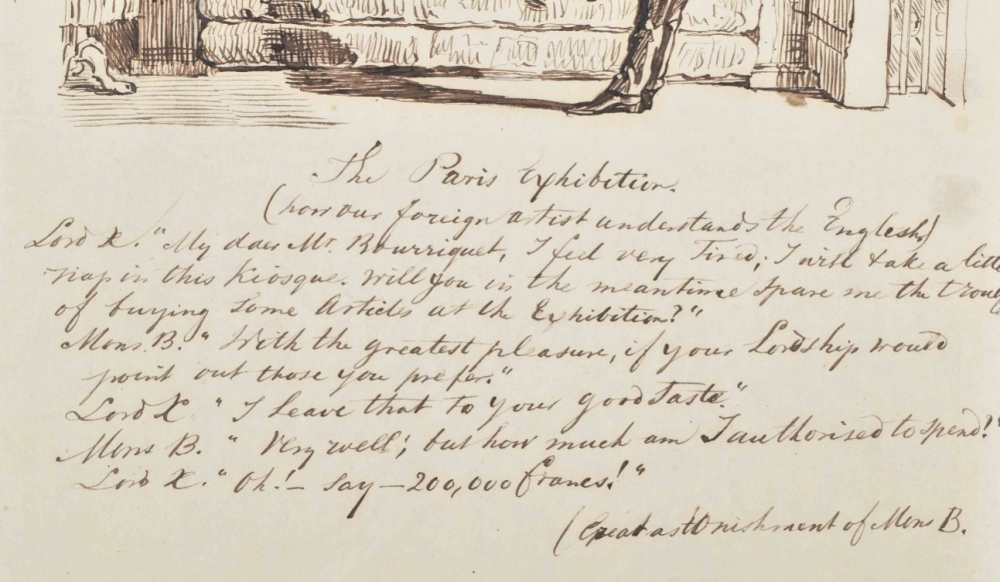 The Paris Exhibition.
(how our foreign artist understands the English)
Lord X. "My dear Mr. Bourriquet, I feel very Tired; I will take a little
nap in this Kiosque. Will you in the meantime spare me the troub
of buying some Articles at the Exhibition?"
Mons. B. "With the greatest pleasure, if your Lordship would
point out those you prefer."
Lord X. "I leave that to your good Taste."
Mons B. "Very well; but how much am I authorised to spend?"
Lord X. "Oh! – say – 200,000 francs!"
(Great astonishment of Mons B.